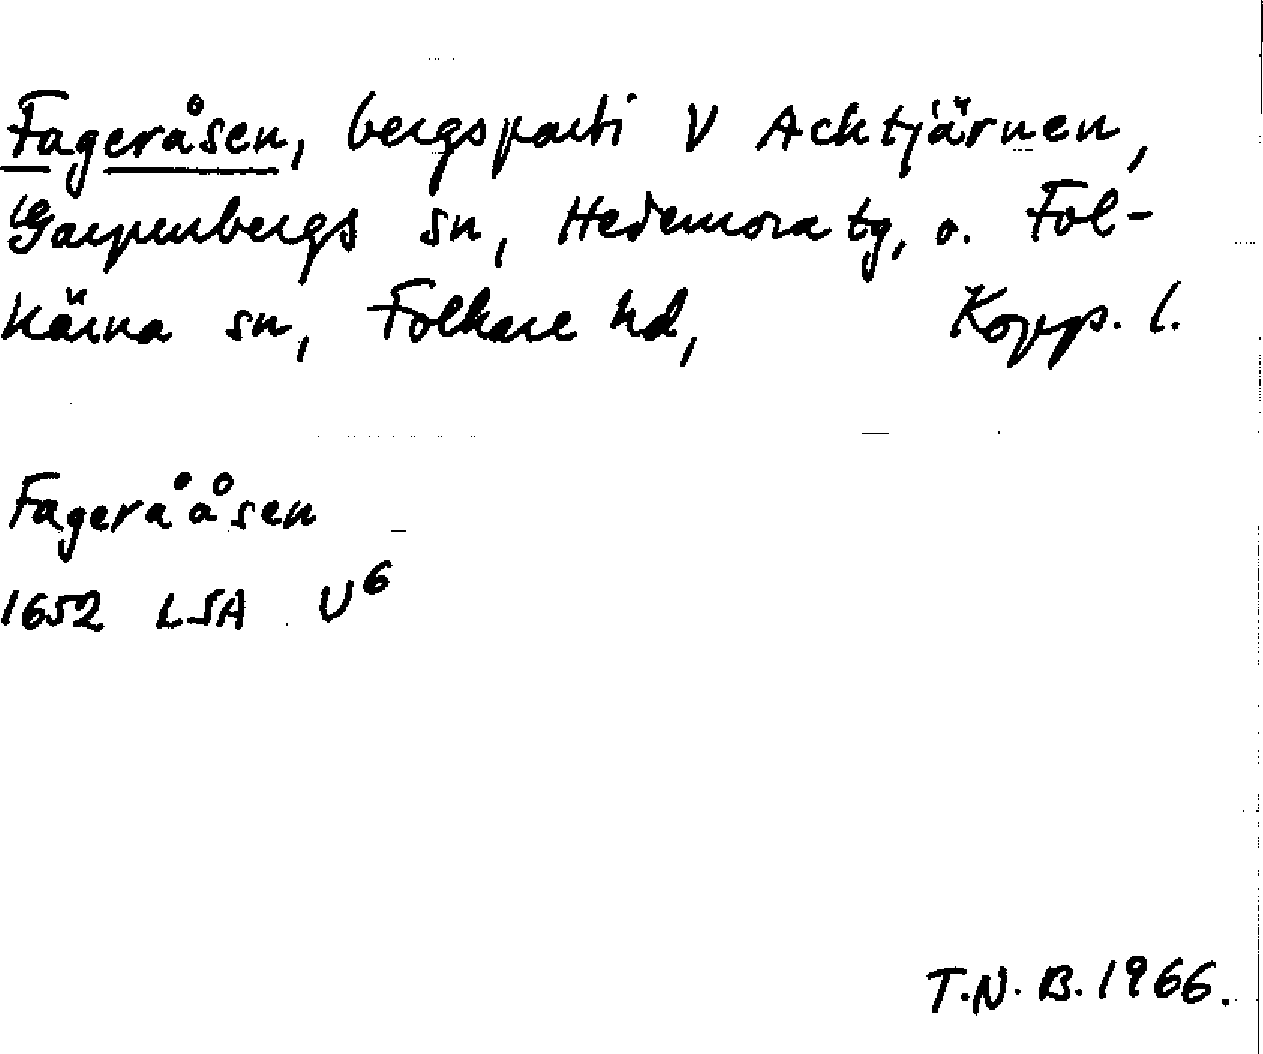 Fageråsen, bergsparti V Acktjärnen,
Garpenbergs sn, Hedemora tg, o. Fol-
kärna sn, Folkare hd, Kopp. l.
Fagerååsen
1652 LSA U6
T.N.B. 1966.